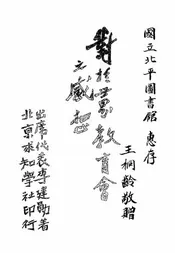 國立北平圖書館 惠存
王桐齡敬贈
對於世界教育會
之感想
出席代表李建勛著
北京求知學社印行